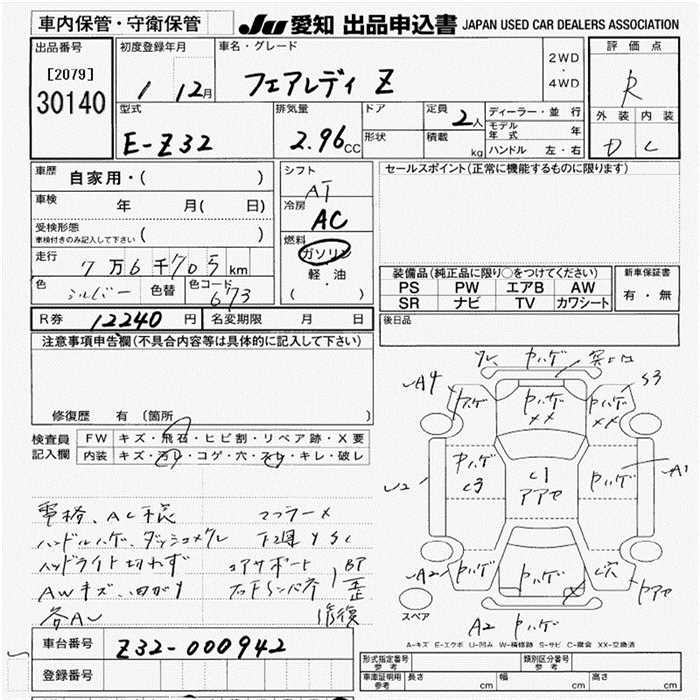 車内保管・守衛保管
JU 愛知 出品申込書 JAPAN USED CAR DEALERS ASSOCIATION
出品番号
[2079]
30140
初度登録年月
1 12月
車名・グレード
フェアレディ Z
2WD
・
4WD
評価点
R
外装 内装
D C
型式
E-Z32
排気量
2.96cc
ドア
形状
定員 2人
積載 kg
ディーラー・並行
モデル年式 年
ハンドル 左・右
車歴 自家用・( )
車検 年 月( 日)
受検形態
車検付きのみ記入して下さい ( )
走行 7万6千705km
色 シルバー 色替 色コード 673
シフト
AT
冷房
AC
燃料
ガソリン
軽・油
( ・ )
セールスポイント(正常に機能するものに限ります)
装備品(純正品に限り○をつけてください)
PS PW エアB AW
SR ナビ TV カワシート
新車保証書
有・無
R券 12240円 名変期限 月 日
後日品
注意事項申告欄(不具合内容等は具体的に記入して下さい)
修復歴 有(箇所 )
検査員記入欄
FW キズ・飛石・ヒビ割・リペア跡・X要
内装 キズ・汚レ・コゲ・穴・スレ・キレ・破レ
ハンドルハゲ、ダッシュメクレ 下廻りSC
ヘッドライト切れず コアサポート
AWキズ、
修復
ヤハゲ
A4
S3
ヤハゲ
XX
ヤハゲ
XX
ヤハゲ
C3
C1
アアセ
ヤハゲ
A1
U2
A2
ヤハゲ
ヤハゲ
X
C穴
ヤアセ
スペア
A2 ヤハゲ
A-キズ E-エクボ U-凹み W-補修跡 S-サビ C-腐食 XX-交換済
車台番号 Z32-000942
登録番号
形式指定番号 参考
類別区分番号 参考
車庫証明用 参考 長さ cm 幅 cm 高さ cm